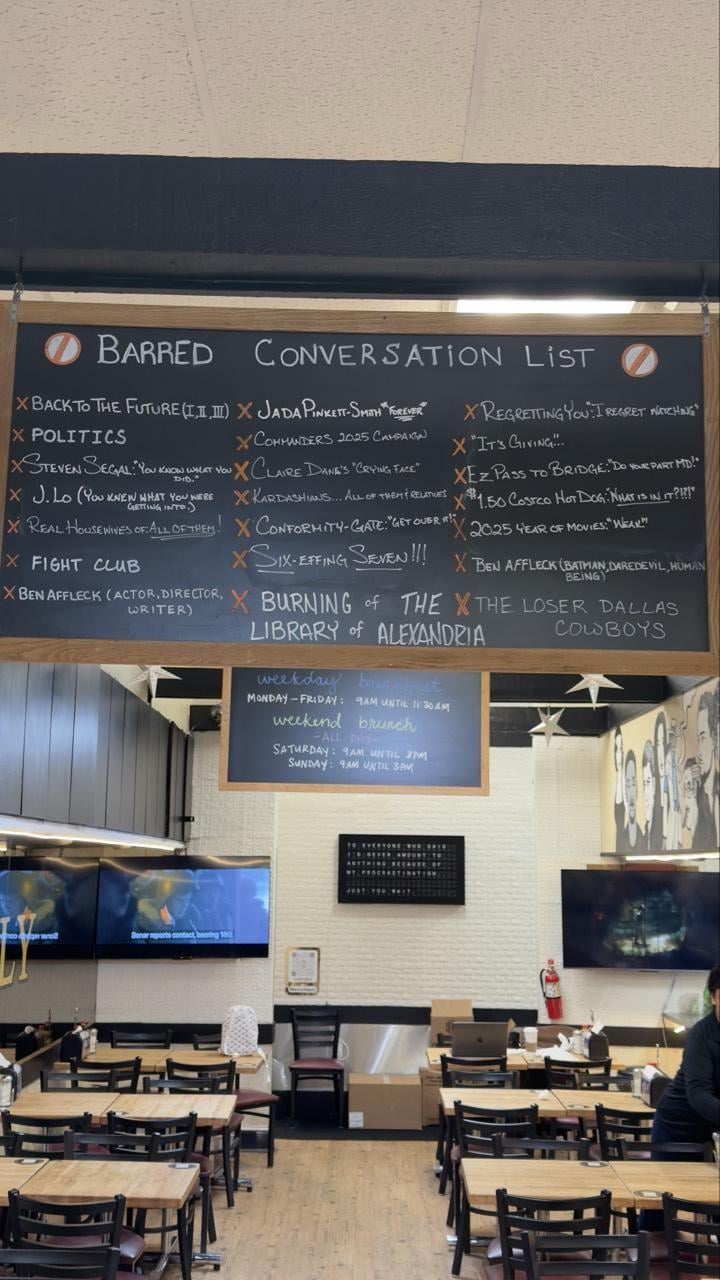 BARRED CONVERSATION LIST
X BACK TO THE FUTURE (I, II, III)
X POLITICS
X STEVEN SEGAL: "YOU KNOW WHAT YOU
DID."
X J.LO (YOU KNEW WHAT YOU WERE
GETTING INTO.)
X REAL HOUSEWIVES OF: ALL OF THEM!
X FIGHT CLUB
X BEN AFFLECK (ACTOR, DIRECTOR,
WRITER)
X JADA PINKETT-SMITH "FOREVER"
X COMMANDERS 2025 CAMPAIGN
X CLAIRE DANE'S "CRYING FACE"
X KARDASHIANS... ALL OF THEM & RELATIVES
X CONFORMITY-GATE: "GET OVER IT!"
X SIX-EFFING SEVEN!!!
X BURNING OF THE
LIBRARY OF ALEXANDRIA
X REGRETTING YOU: "I REGRET WATCHING"
X "IT'S GIVING"...
X EZPASS TO BRIDGE: "DO YOUR PART MD!"
X $1.50 COSTCO HOT DOG: "WHAT IS IN IT?!?!"
X 2025 YEAR OF MOVIES: "WEAK"
X BEN AFFLECK (BATMAN, DAREDEVIL, HUMAN
BEING)
X THE LOSER DALLAS
COWBOYS
weekday breakfast
MONDAY - FRIDAY: 9AM UNTIL 11:30AM
weekend brunch
-ALL DAY-
SATURDAY: 9AM UNTIL 8PM
SUNDAY: 9AM UNTIL 3PM
TO EVERYONE WHO SAID
I'D NEVER AMOUNT TO
ANYTHING BECAUSE OF
MY PROCRASTINATION
JUST YOU WAIT
Sonar reports contact, bearing 180.
LY